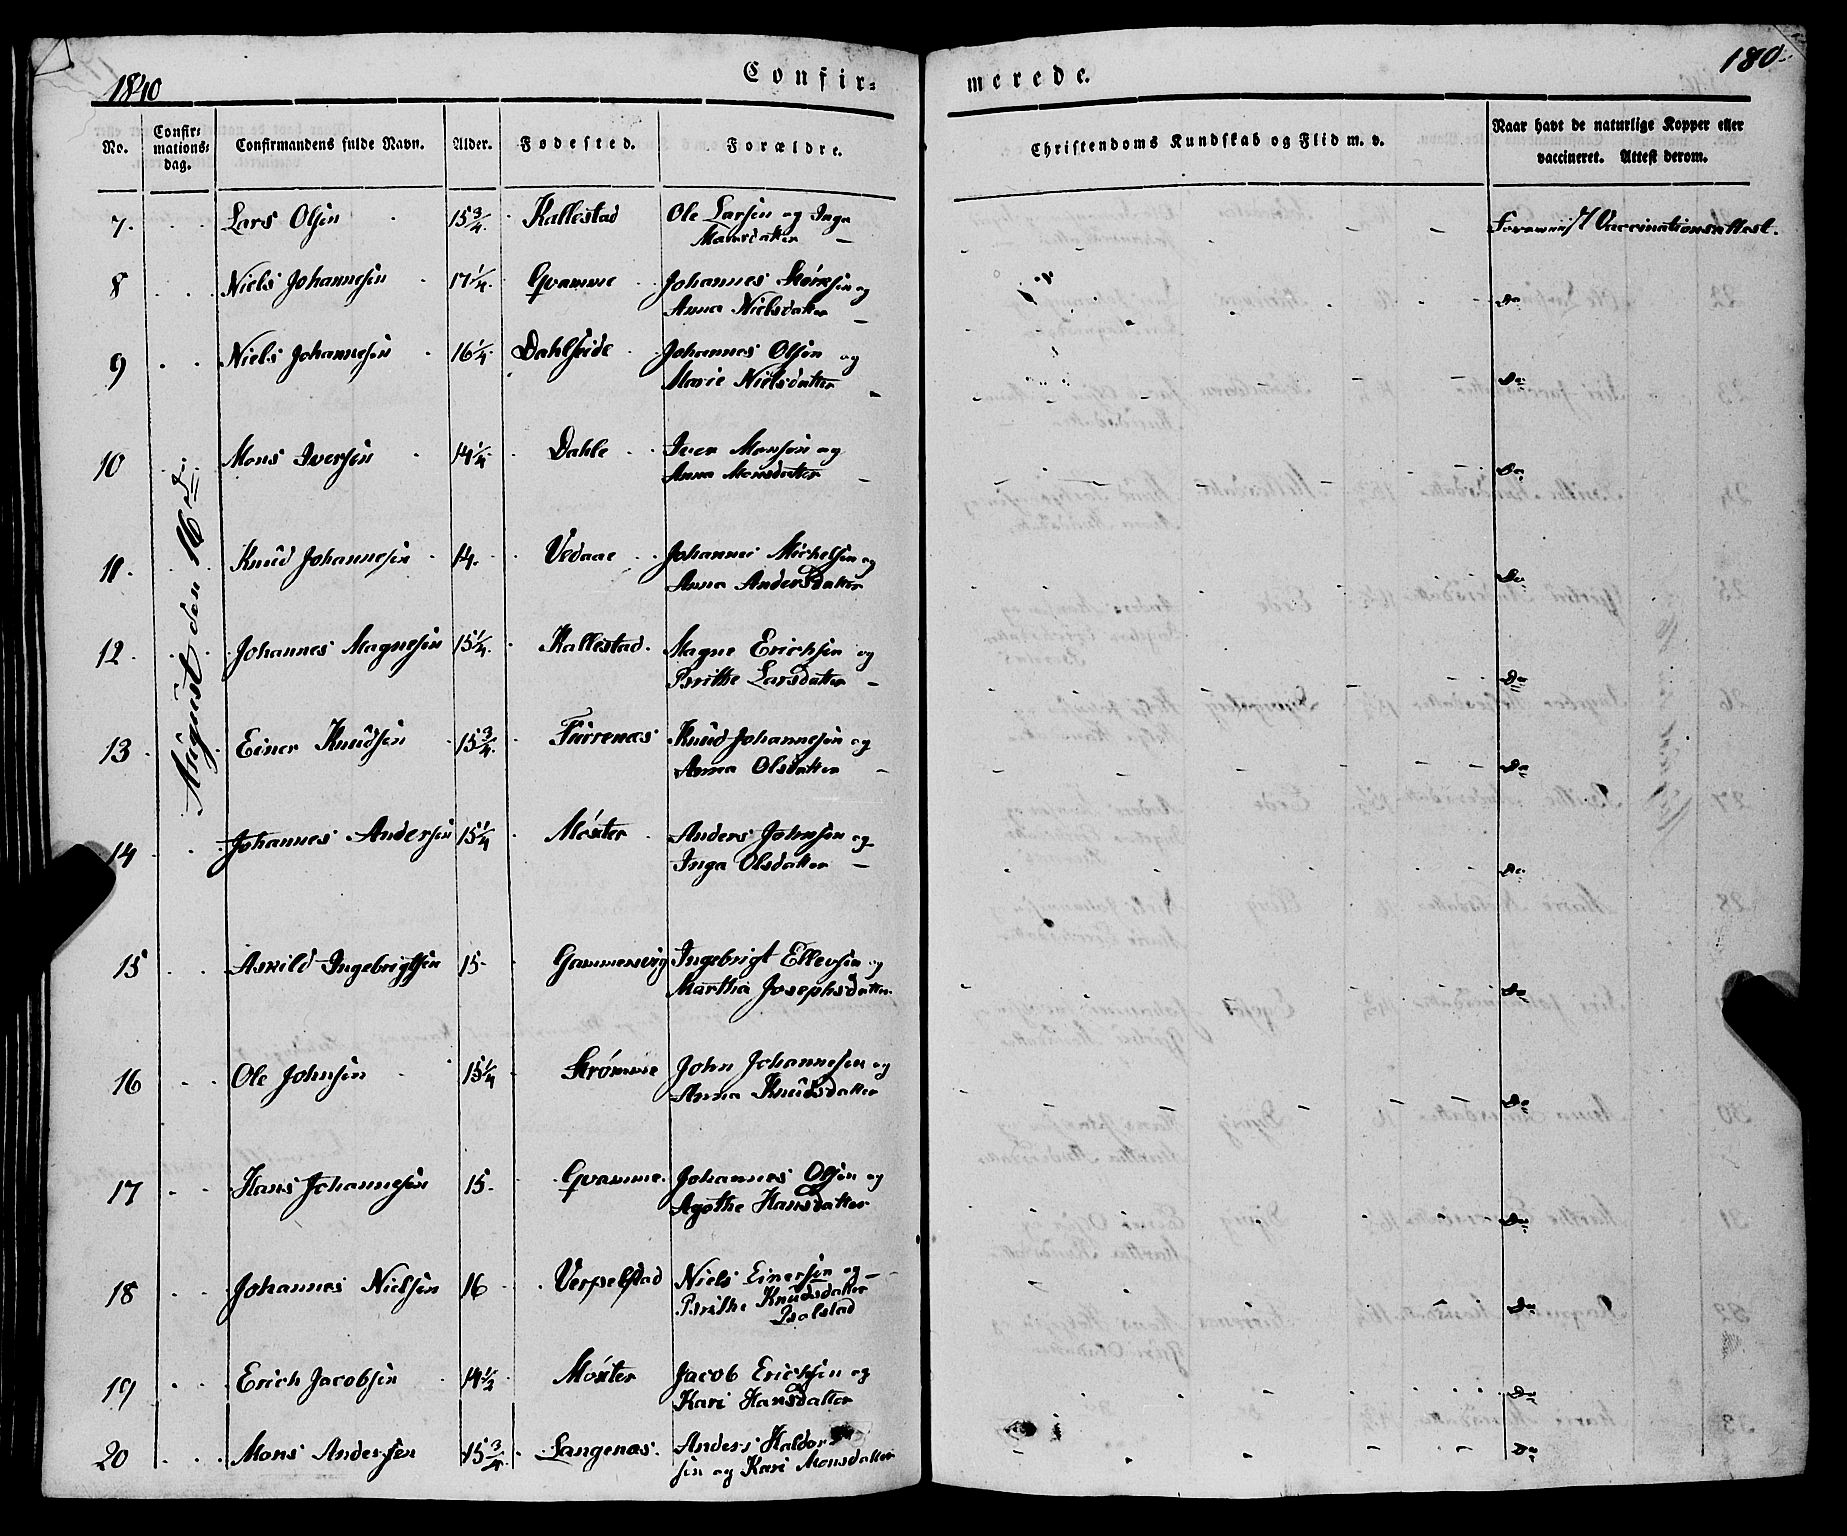 1840
Confir=
merede.
180
No.
Confir=
mations=
dag.
Confirmandens fulde Navn.
Alder.
Fødested.
Forældre.
Christendoms Kundskab og Flid m. v.
Naar havt de naturlige Kopper eller
vaccineret. Attest derom.
August den 16d
7. Lars Olsen 15 3/4. Kallestad Ole Larsen og Inga
Monsdatter Foreviist Vaccinationsattest.
8 Niels Johannesen 17 1/4. Gvamme Johannes og
Anna Nielsdatter Do
9 Niels Johannesen 16 1/4. Dahlseide Johannes Olsen og
Marie Nielsdatter Do
10 Mons Iversen 14 1/4 Dahle Iver Monsen og
Anna Monsdatter Do
11. Knud Johannesen 14. Vedaae Johannes Michelsen og
Anna Andersdatter Do
12. Johannes Magnesen 15 1/4. Kallestad. Magne Erichsen og
Brithe Larsdatter Do
13 Einer Knudsen 15 3/4. Furrenæs Knud Johannesen og
Anna Olsdatter Do
14 Johannes Andersen 15 1/4 Møster Anders Johnsen og
Inga Olsdatter Do
15 Askild Ingebrigtsen 15. Gammersvig Ingebrigt Ellevsen og
Martha Josephsdatter. Do
16 Ole Johnsen 15 1/4 Strømme John Johannesen og
Anna Knudsdatter Do
17 Hans Johannesen 15. Gvamme. Johannes Olsen og
Agathe Hansdatter Do
18 Johannes Nielsen 16 Verpelstad Niels Einersen og
Brithe Knudsdatter
Do
19 Erich Jacobsen 14 1/2 Møster Jacob Erichsen og
Kari Hansdatter Do
20 Mons Andersen 15 3/4. Langenæs. Anders Haldor
sen og Kari Monsdatter Do